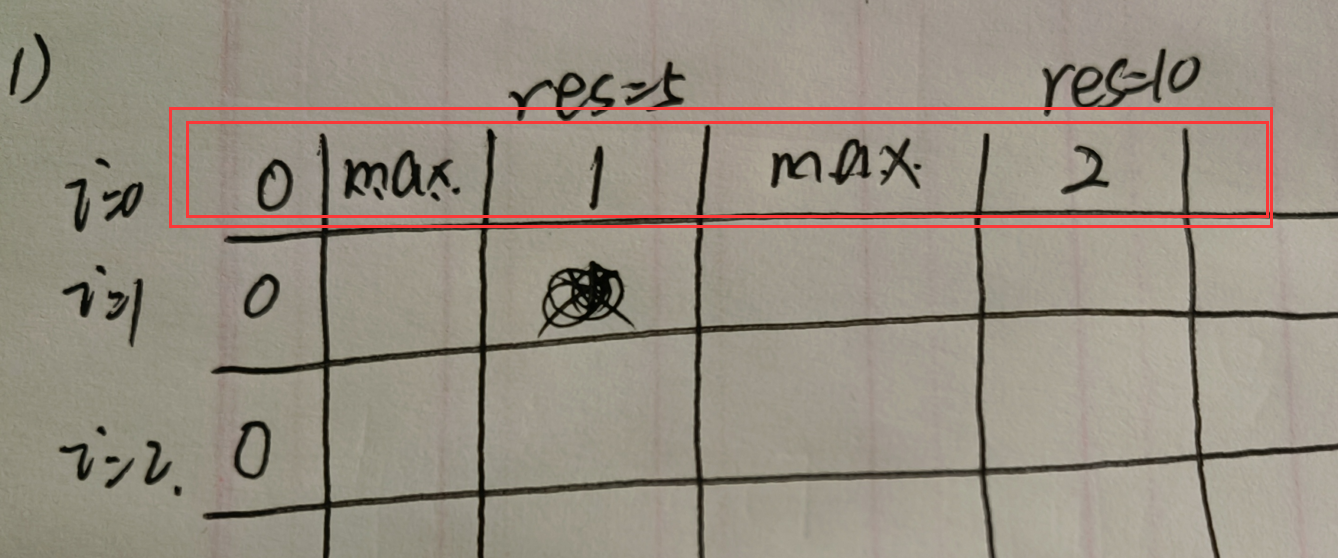 1)
res=5 res=10
i=0 0 max. 1 max. 2
i=1 0
i=2. 0